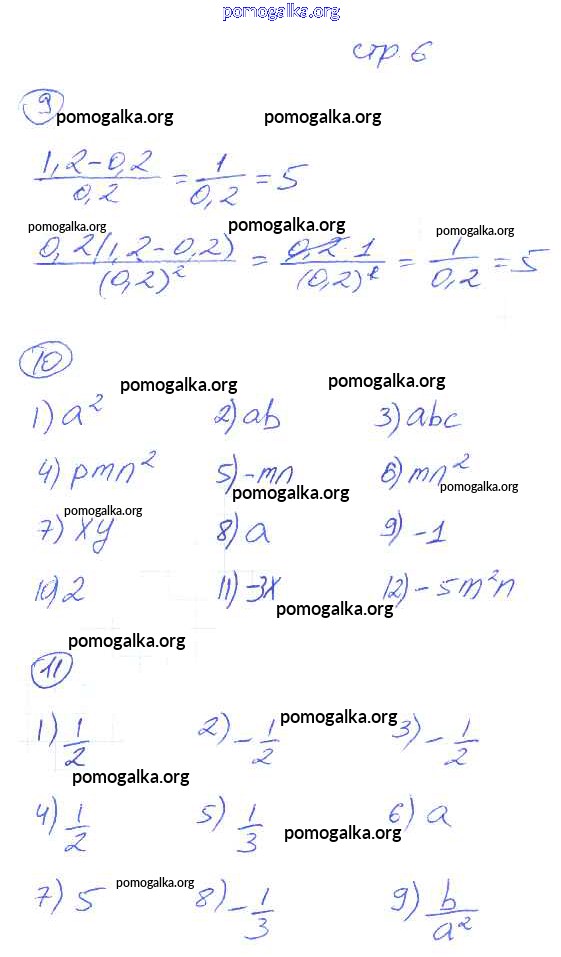 pomogalka.org
стр. 6
9
pomogalka.org pomogalka.org
1,2-0,2/0,2 = 1/0,2 = 5
pomogalka.org pomogalka.org pomogalka.org
0,2(1,2-0,2)/(0,2)² = 0,2·1/(0,2)² = 1/0,2 = 5
10
pomogalka.org pomogalka.org
1) a² 2) ab 3) abc
4) pmn² 5) -mn 6) mn²
pomogalka.org pomogalka.org
pomogalka.org
7) xy 8) a 9) -1
10) 2 11) -3x 12) -5m²n
pomogalka.org
pomogalka.org
11
pomogalka.org
1) 1/2 2) -1/2 3) -1/2
pomogalka.org
4) 1/2 5) 1/3 6) a
pomogalka.org
pomogalka.org
7) 5 8) -1/3 9) b/a²